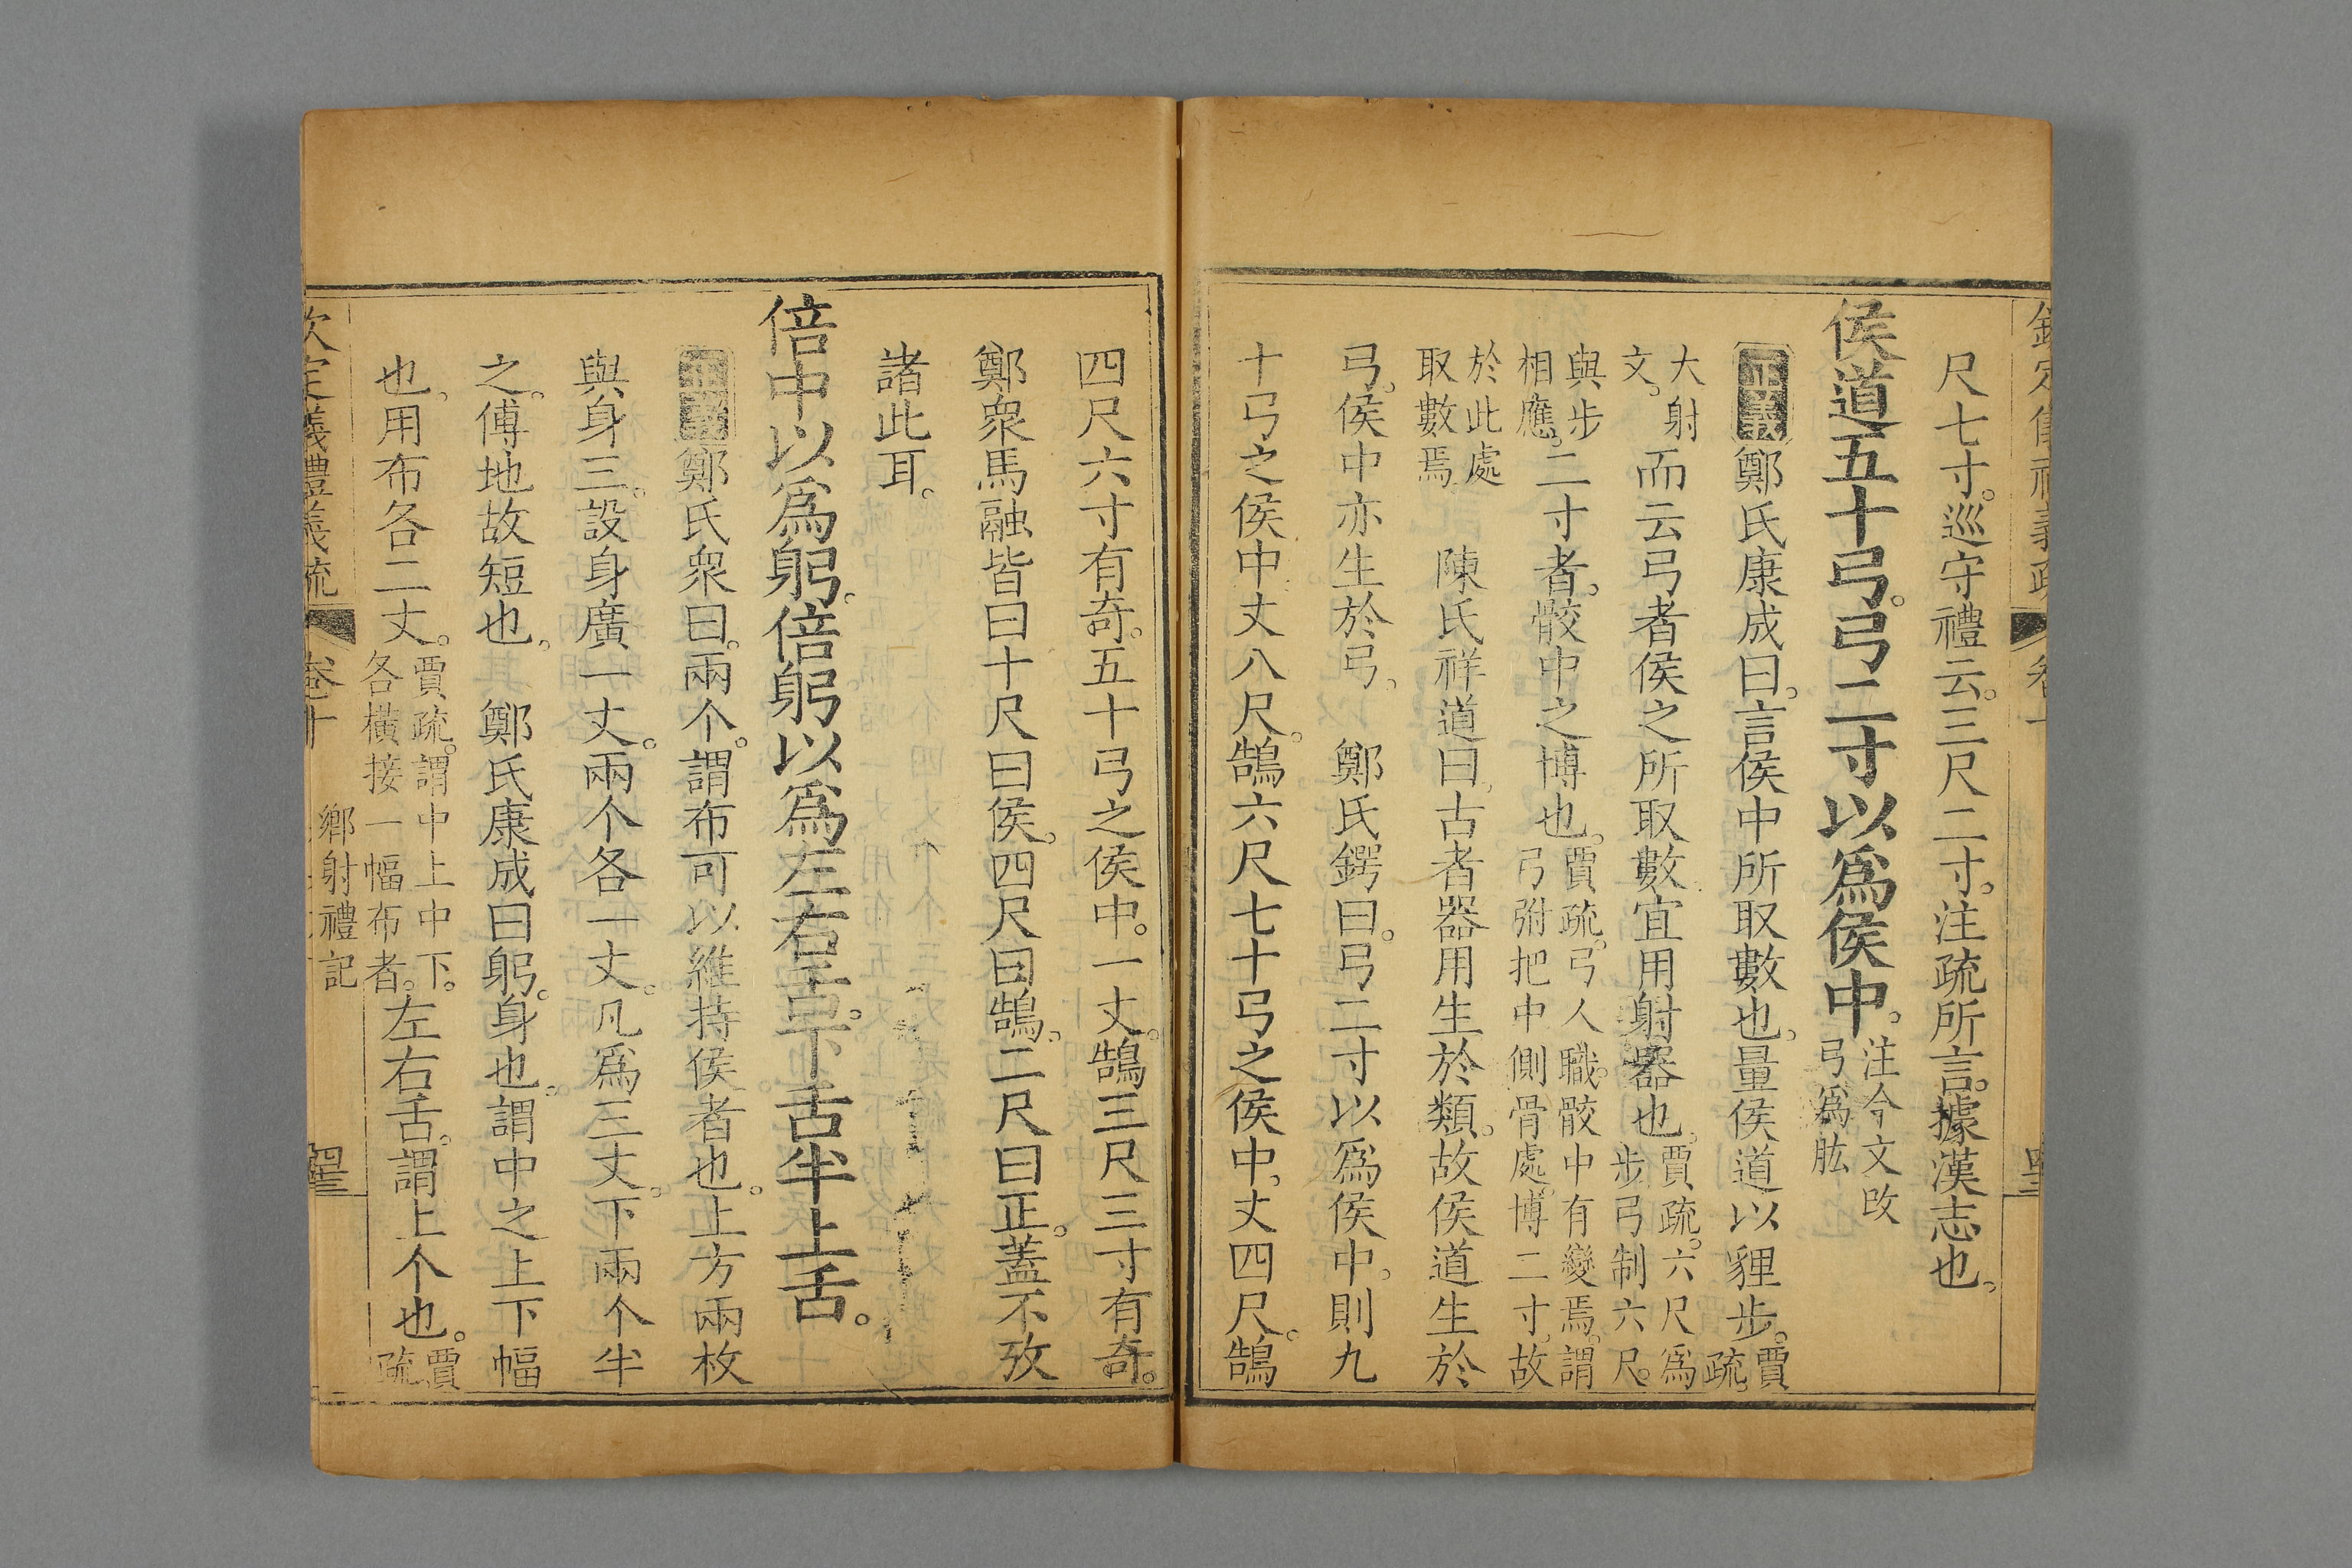 尺七寸。巡守禮云。三尺二寸。注疏所言。據漢志也。
侯道五十弓。弓二寸以爲侯中。注今文改弓爲肱
正義鄭氏康成曰。言侯中所取數也。量侯道以貍步。賈疏。
大射文。而云弓者侯之所取數宜用射器也。賈疏。六尺爲步弓制六尺。
與步相應。二寸者。骹中之博也。賈疏。弓人職。骹中有變焉。謂弓弣把中側骨處。博二寸。故
於此處取數焉。陳氏祥道曰。古者器用生於類。故侯道生於
弓。侯中亦生於弓。鄭氏鍔曰。弓二寸以爲侯中。則九
十弓之侯中丈八尺。鵠六尺七十弓之侯中。丈四尺。鵠
四尺六寸有奇。五十弓之侯中。一丈。鵠三尺三寸有奇。
鄭衆馬融皆曰十尺曰侯。四尺曰鵠。二尺曰正。蓋不攷
諸此耳。
倍中以爲躬。倍躬以爲左右舌。下舌半上舌。
正義鄭氏衆曰。兩个。謂布可以維持侯者也。上方兩枚
與身三。設身廣一丈。兩个各一丈。凡爲三丈。下兩个半
之。傅地故短也。鄭氏康成曰躬。身也。謂中之上下幅
也。用布各二丈。賈疏。謂中上中下。各橫接一幅布者。左右舌。謂上个也。賈疏
欽定儀禮義疏 卷十 鄉射禮記